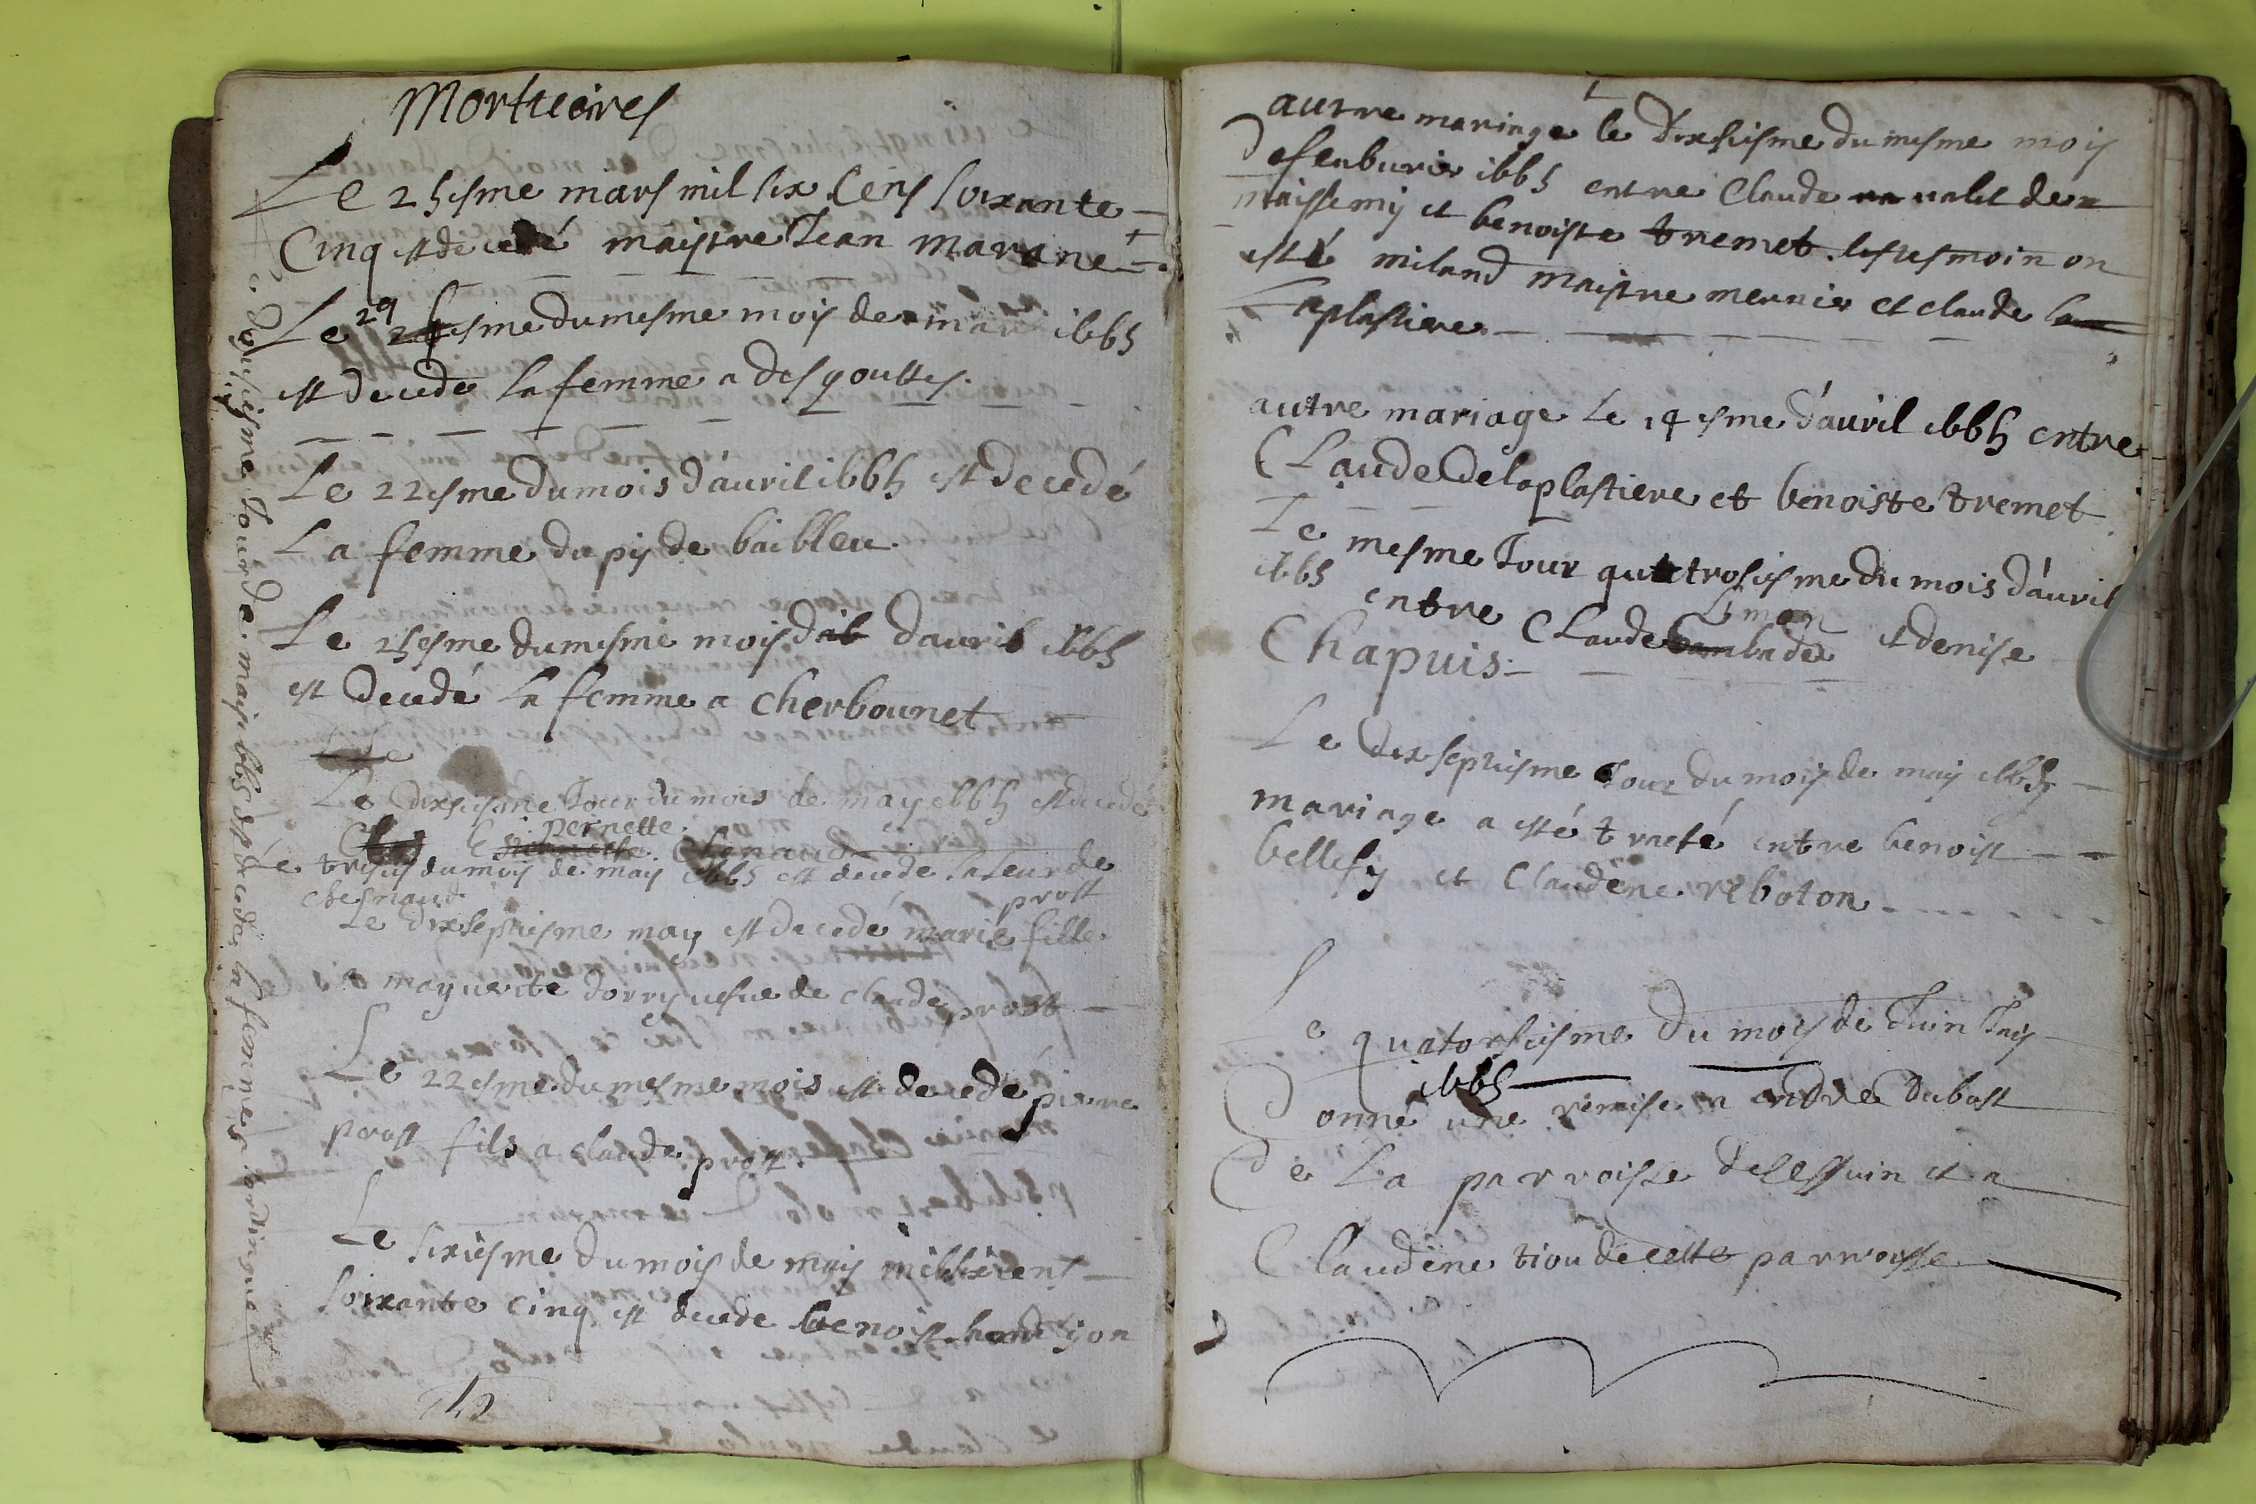 Mortueires
Le 25isme mars mil six cens soixante
Cinq est decedé maistre Jean marane
Le 29 isme du mesme mois de mar 1665
est decede la femme a desgouttes.
Le 22isme du mois d'auril 1665 est decedé
La femme du pis de baibleu
Le 25isme du mesme mois dab dauril 1665
est decedé la femme a cherbounet
Le
Le dixsiesme Jour du mois de may 1665 est decedé
pernette
Chenaud
Le trisies du moys de may 1665 est decede la seur de
chesnaud
prost
Le dixseptiesme may est decedé marie fille
a marguerite dorris uefue de claude prost
Le 22isme du mesme mois est decedé pierre
prost fils a claude prot
Le sixiesme du mois de mays mil six cent
soixante cinq est decede benoist
Le dousiesme Jour de mays 1665 est decedee la femme
autre mariage le dixsiesme du mesme mois
de feuburier 1665 entre Claude ualet de
maissemy et benoiste tremet. les tesmoin on
esté miland maistre mernier et claude la
laplastiere
autre mariage Le 14 isme d'auril 1665 entre
CLaude de laplastiere et benoiste tremet
Le mesme Jour quatrosiesme du mois d'auril
1665 entre CLaude Limon et denise
Chapuis.
Le dixseptiesme Jour du mois de may 1665
mariage a esté tracté entre benoist
bellesy et Claudene reboton
Le quatorsiesme du moys de Juin Jay
1665
Donné une remise a andre dubost
De La parroisse delessuin et a
Claudene tiou de cette parroisse